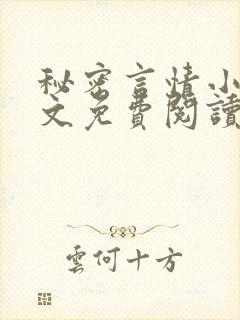 秘密言情小
文免費閱讀
雲何十方